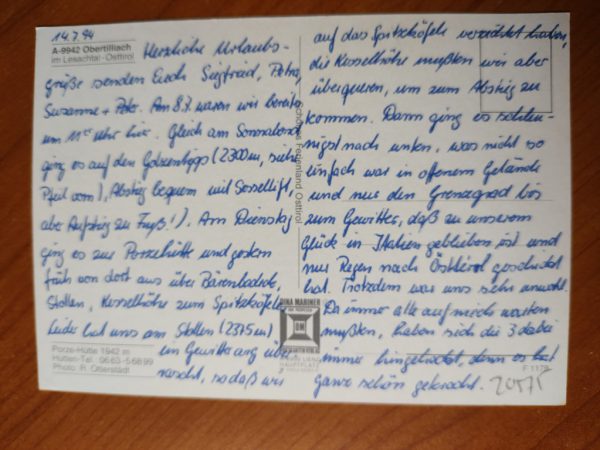 14.7.94
A-9942 Obertilliach
im Lesachtal-Osttirol
Herzliche Urlaubs-
grüße senden Euch Siegfried, Petra,
Susanne + Peter. Am 8.7. waren wir bereits
um 11 Uhr hier. Gleich am Sonnabend
ging es auf den Golzentipp (2300m, siehe
Pfeil vorn), Abstieg bequem mit Sessellift,
aber Aufstieg zu Fuß!). Am Dienstag
ging es zur Porzehütte und gestern
früh von dort aus über Bärenbadeck,
Stollen, Kesselhöhe zum Spitzköfele.
Leider hat uns am Stollen (2375m)
ein Gewitter arg über-
rascht, so daß wir
Porze-Hütte 1942 m
Hütten-Tel. 0663-56899
Photo: R. Oberstadl
Schönes Ferienland Osttirol
DINA MARINER
DM
HAUPTPLATZ
auf das Spitzköfele verzichtet haben,
die Kesselhöhe mußten wir aber
überqueren, um zum Abstieg zu
kommen. Dann ging es schleu-
nigst nach unten, was nicht so
einfach war in offenem Gelände
und nur den Grenzgrad bis
zum Gewitter, daß zu unserem
Glück in Italien geblieben ist und
nur Regen nach Osttirol geschickt
hat. Trotzdem war uns sehr
Da immer alle auf mich warten
mußten, haben sich die 3 dabei
immer hingehockt, denn es hat
ganz schön gekracht.
F 1178